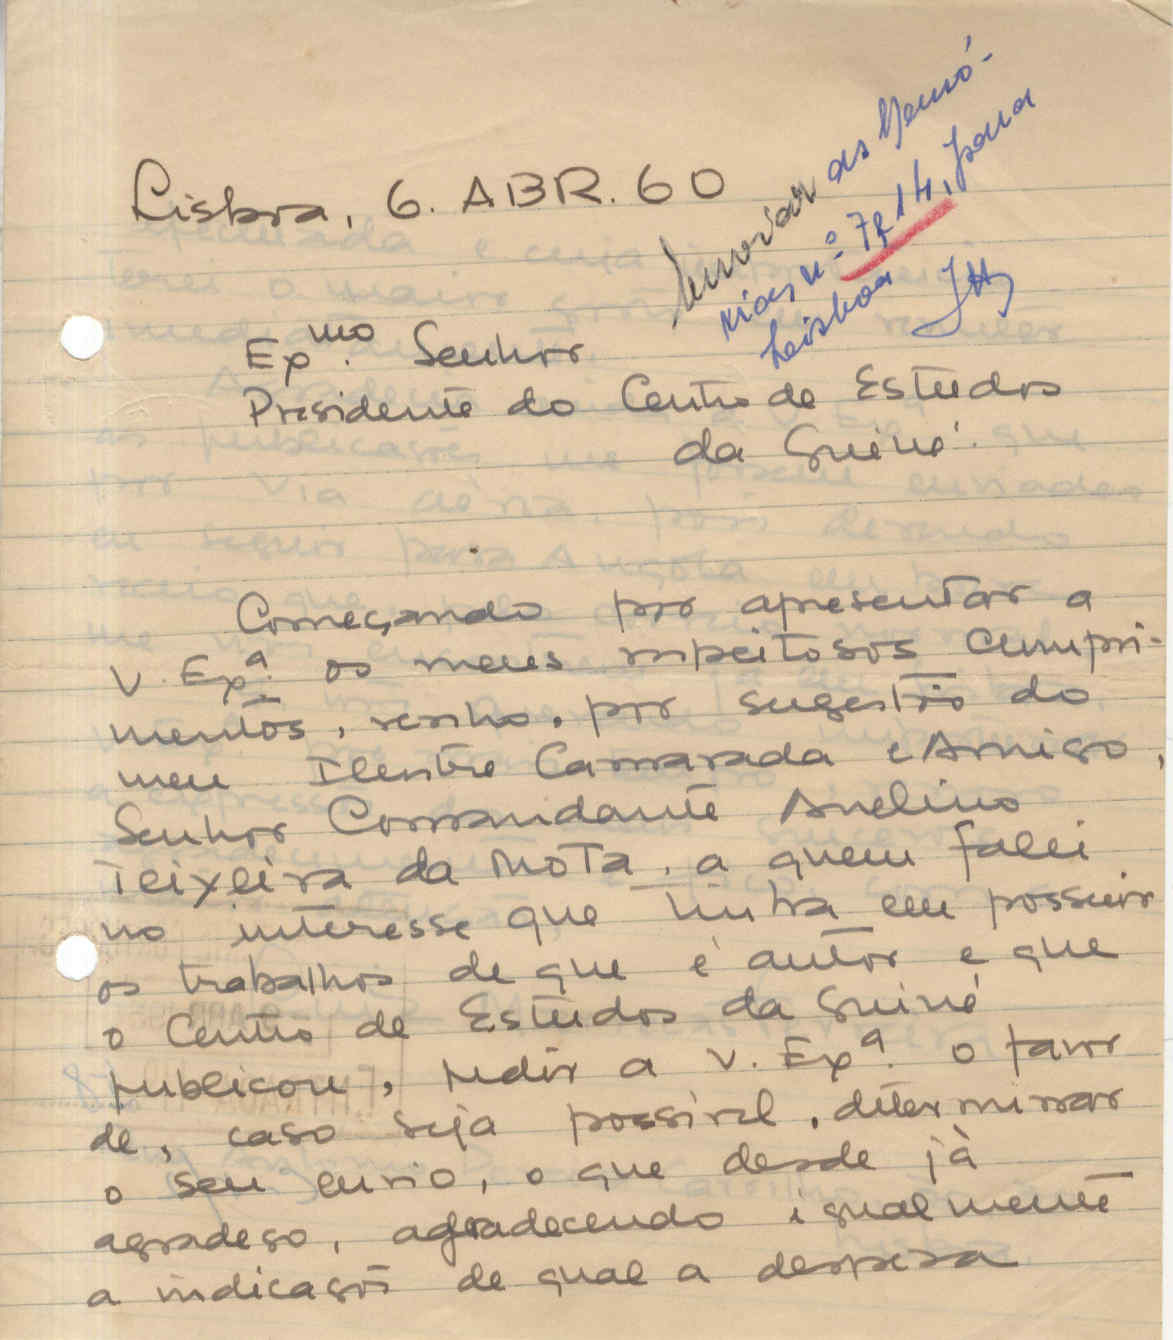 Lisboa, 6. ABR. 60
Enviar as Memó-
rias nº 7 e 14, para
Lisboa
Exmo. Senhor
Presidente do Centro de Estudos
da Guiné.
Começando por apresentar a
V. Exª. os meus respeitosos cumpri-
mentos, venho, por sugestão do
meu Ilustre Camarada e Amigo,
Senhor Comandante Avelino
Teixeira da Mota, a quem falei
no interesse que tinha em possuir
os trabalhos de que é autor e que
o Centro de Estudos da Guiné
publicou, pedir a V. Exª. o favor
de, caso seja possivel, determinar
o seu envio, o que desde já
agradeço, agradecendo igualmente
a indicação de qual a despesa